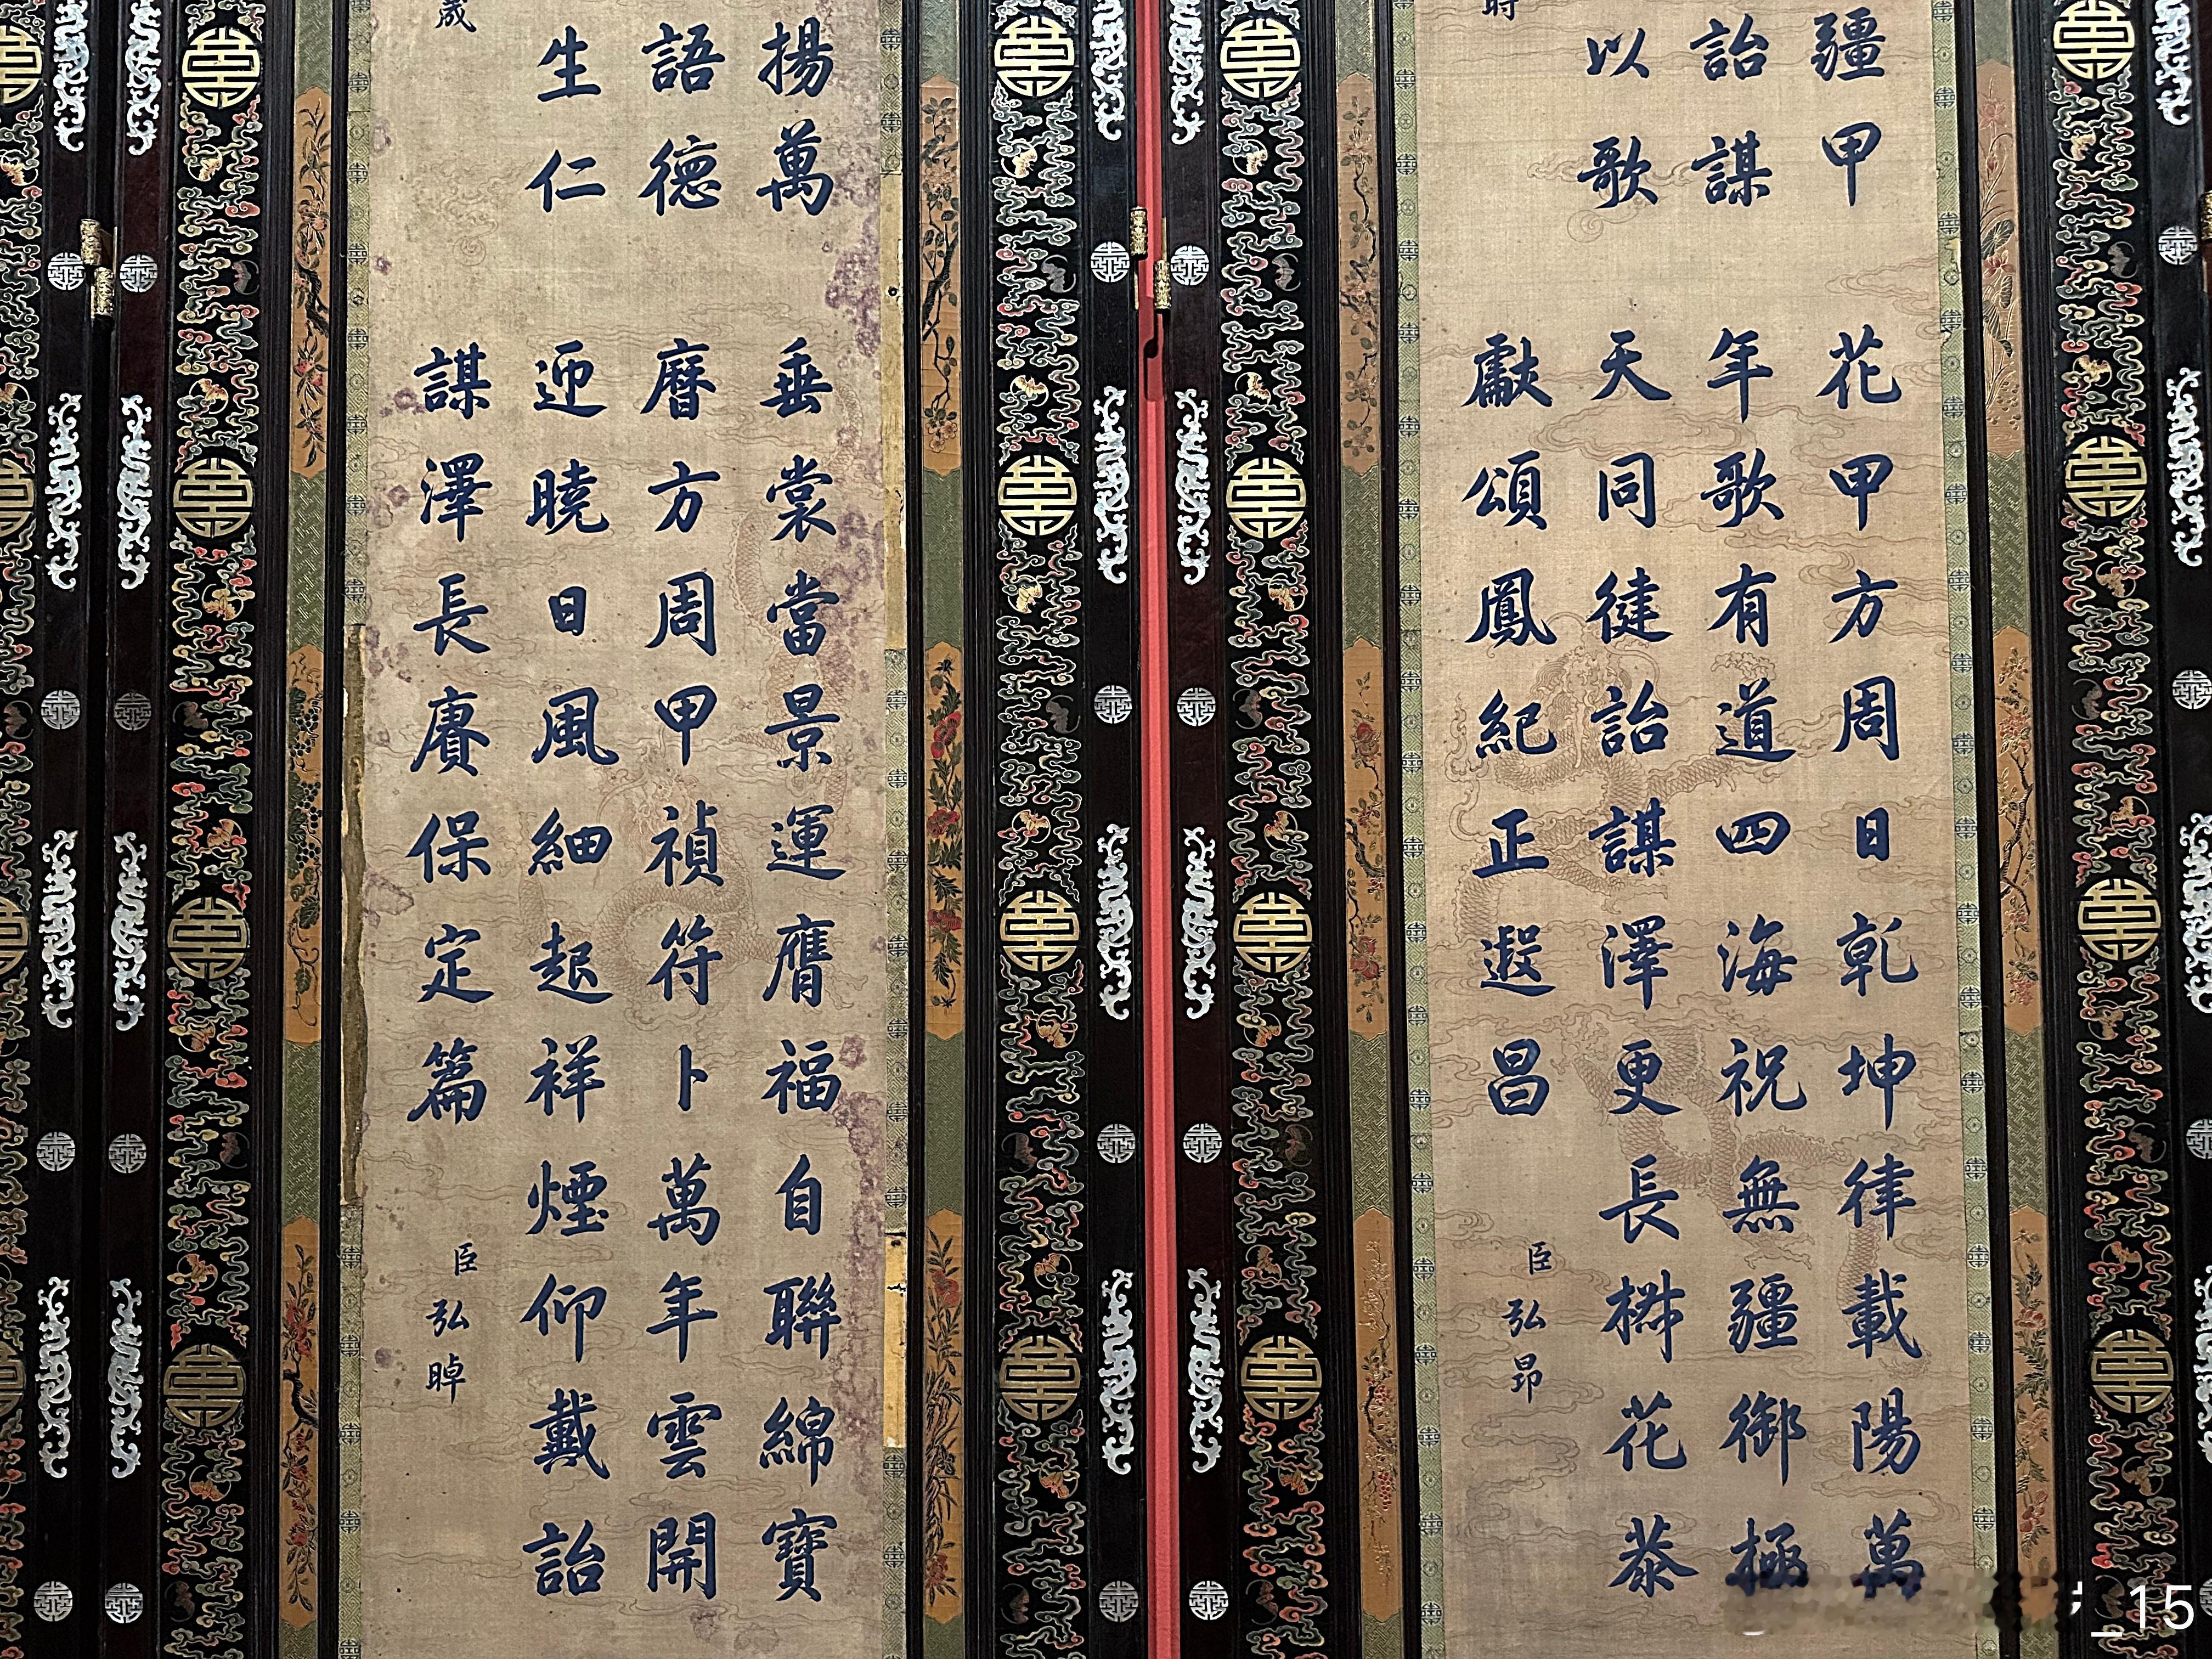 疆甲
詒謀
以歌
花甲方周日乾坤律載陽萬
年歌有道四海祝無疆御極
天同徤詒謀澤更長椒花恭
獻頌鳳紀正遐昌
臣弘昂
揚萬
語德
生仁
垂裳當景運膺福自聯綿寶
曆方周甲禎符卜萬年雲開
迎曉日風細起祥煙仰戴詒
謀澤長賡保定篇
臣弘晫
_15